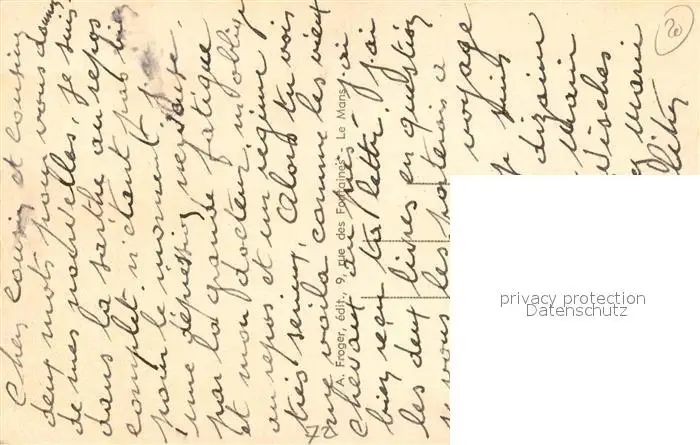 Cher cousin et cousine
deux mots pour vous donner
de mes nouvelles, je suis
dans la sarthe au repos
complet n'étant pas bien
pour le moment j'ai
une dépression nerveuse
par la grande fatigue
et mon docteur m'oblige
au repos et un régime
très serieux, Alors tu vois
me voila comme les vieux
chevaux au
bien reçu ta lettre, j'ai
les deux livres en question
je vous les porterais a
voyage
suis
dizaine
Marie
A. Froger, édit., 9, rue des Fontaines - Le Mans
72
20
privacy protection
Datenschutz